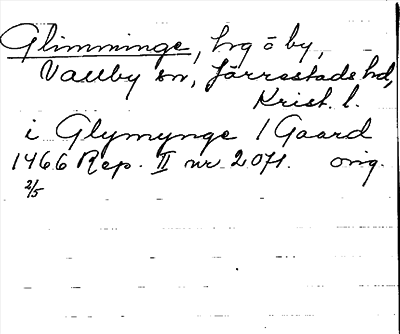 Glimminge, hrg o by,
Vallby sn, Järrestads hd,
Krist. l.
i Glymynge 1 Gaard
1466 Rep. II nr 2071. orig.
2/5